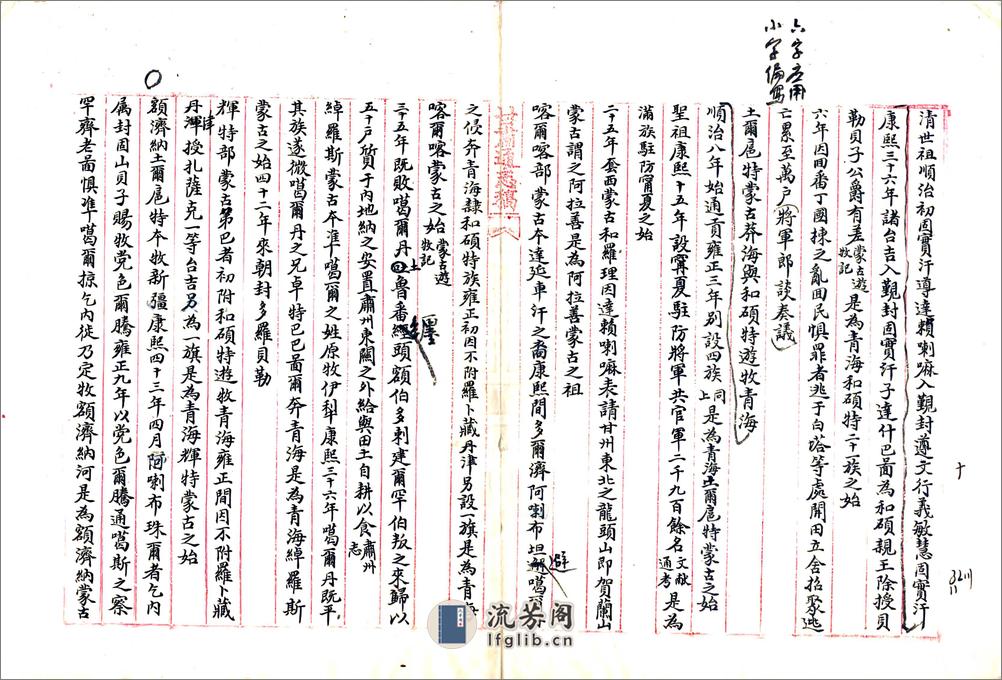 六字应用
小字偏写
清世祖順治初固實汗導達賴喇嘛入覲封遵文行義敏慧固實汗
康熙三十六年諸台吉入覲封固實汗子達什巴圖為和碩親王除授貝
勒貝子公爵有差蒙古遊牧記是為青海和碩特二十一族之始
六年因回番丁國棟之亂回民惧罪者逃于白塔等處開田立舍招聚逃
亡累至萬戶將軍郎談奏議
土爾扈特蒙古莽海與和碩特遊牧青海
順治八年始通貢雍正三年別設四族同上是為青海土爾扈特蒙古之始
聖祖康熙十五年設寧夏駐防將軍共官軍二千九百餘名文献通考是為
滿族駐防甯夏之始
二十五年套西蒙古和羅理因達賴喇嘛表請甘州東北之龍頭山即賀蘭山
蒙古謂之阿拉善是為阿拉善蒙古之祖
喀爾喀部蒙古本達延車汗之裔康熙間多爾濟阿喇布坦避噶爾
甘肅通志稿
之侵奔青海隸和碩特族雍正初因不附羅卜藏丹津另設一旗是為青海
喀爾喀蒙古之始蒙古遊牧記
三十五年既敗噶爾丹土魯番纒頭額伯多剌建爾罕伯叛之來歸以
五十戶質于內地納之安置肅州東關之外給與田土自耕以食肅州志
綽羅斯蒙古本準噶爾之姓原牧伊犁康熙三十六年噶爾丹既平
其族遂微噶爾丹之兄卓特巴巴圖爾奔青海是為青海綽羅斯
蒙古之始四十二年來朝封多羅貝勒
輝特部蒙古第巴者初附和碩特遊牧青海雍正間因不附羅卜藏
丹津授扎薩克一等台吉另為一旗是為青海輝特蒙古之始
額濟納土爾扈特本牧新疆康熙四十三年四月阿喇布珠爾者乞內
属封固山貝子賜牧党色爾騰雍正九年以党色爾騰通噶斯之察
罕齊老圖惧準噶爾掠乞內徙乃定牧額濟納河是為額濟納蒙古
流芳阁
lfglib.cn